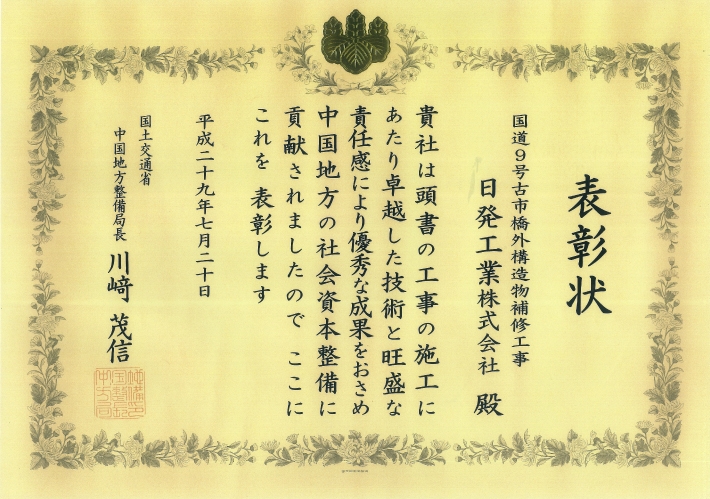 表彰状
国道９号古市橋外構造物補修工事
日発工業株式会社 殿
貴社は頭書の工事の施工に
あたり卓越した技術と旺盛な
責任感により優秀な成果をおさめ
中国地方の社会資本整備に
貢献されましたので ここに
これを 表彰します
平成二十九年七月二十日
国土交通省
中国地方整備局長 川﨑 茂信